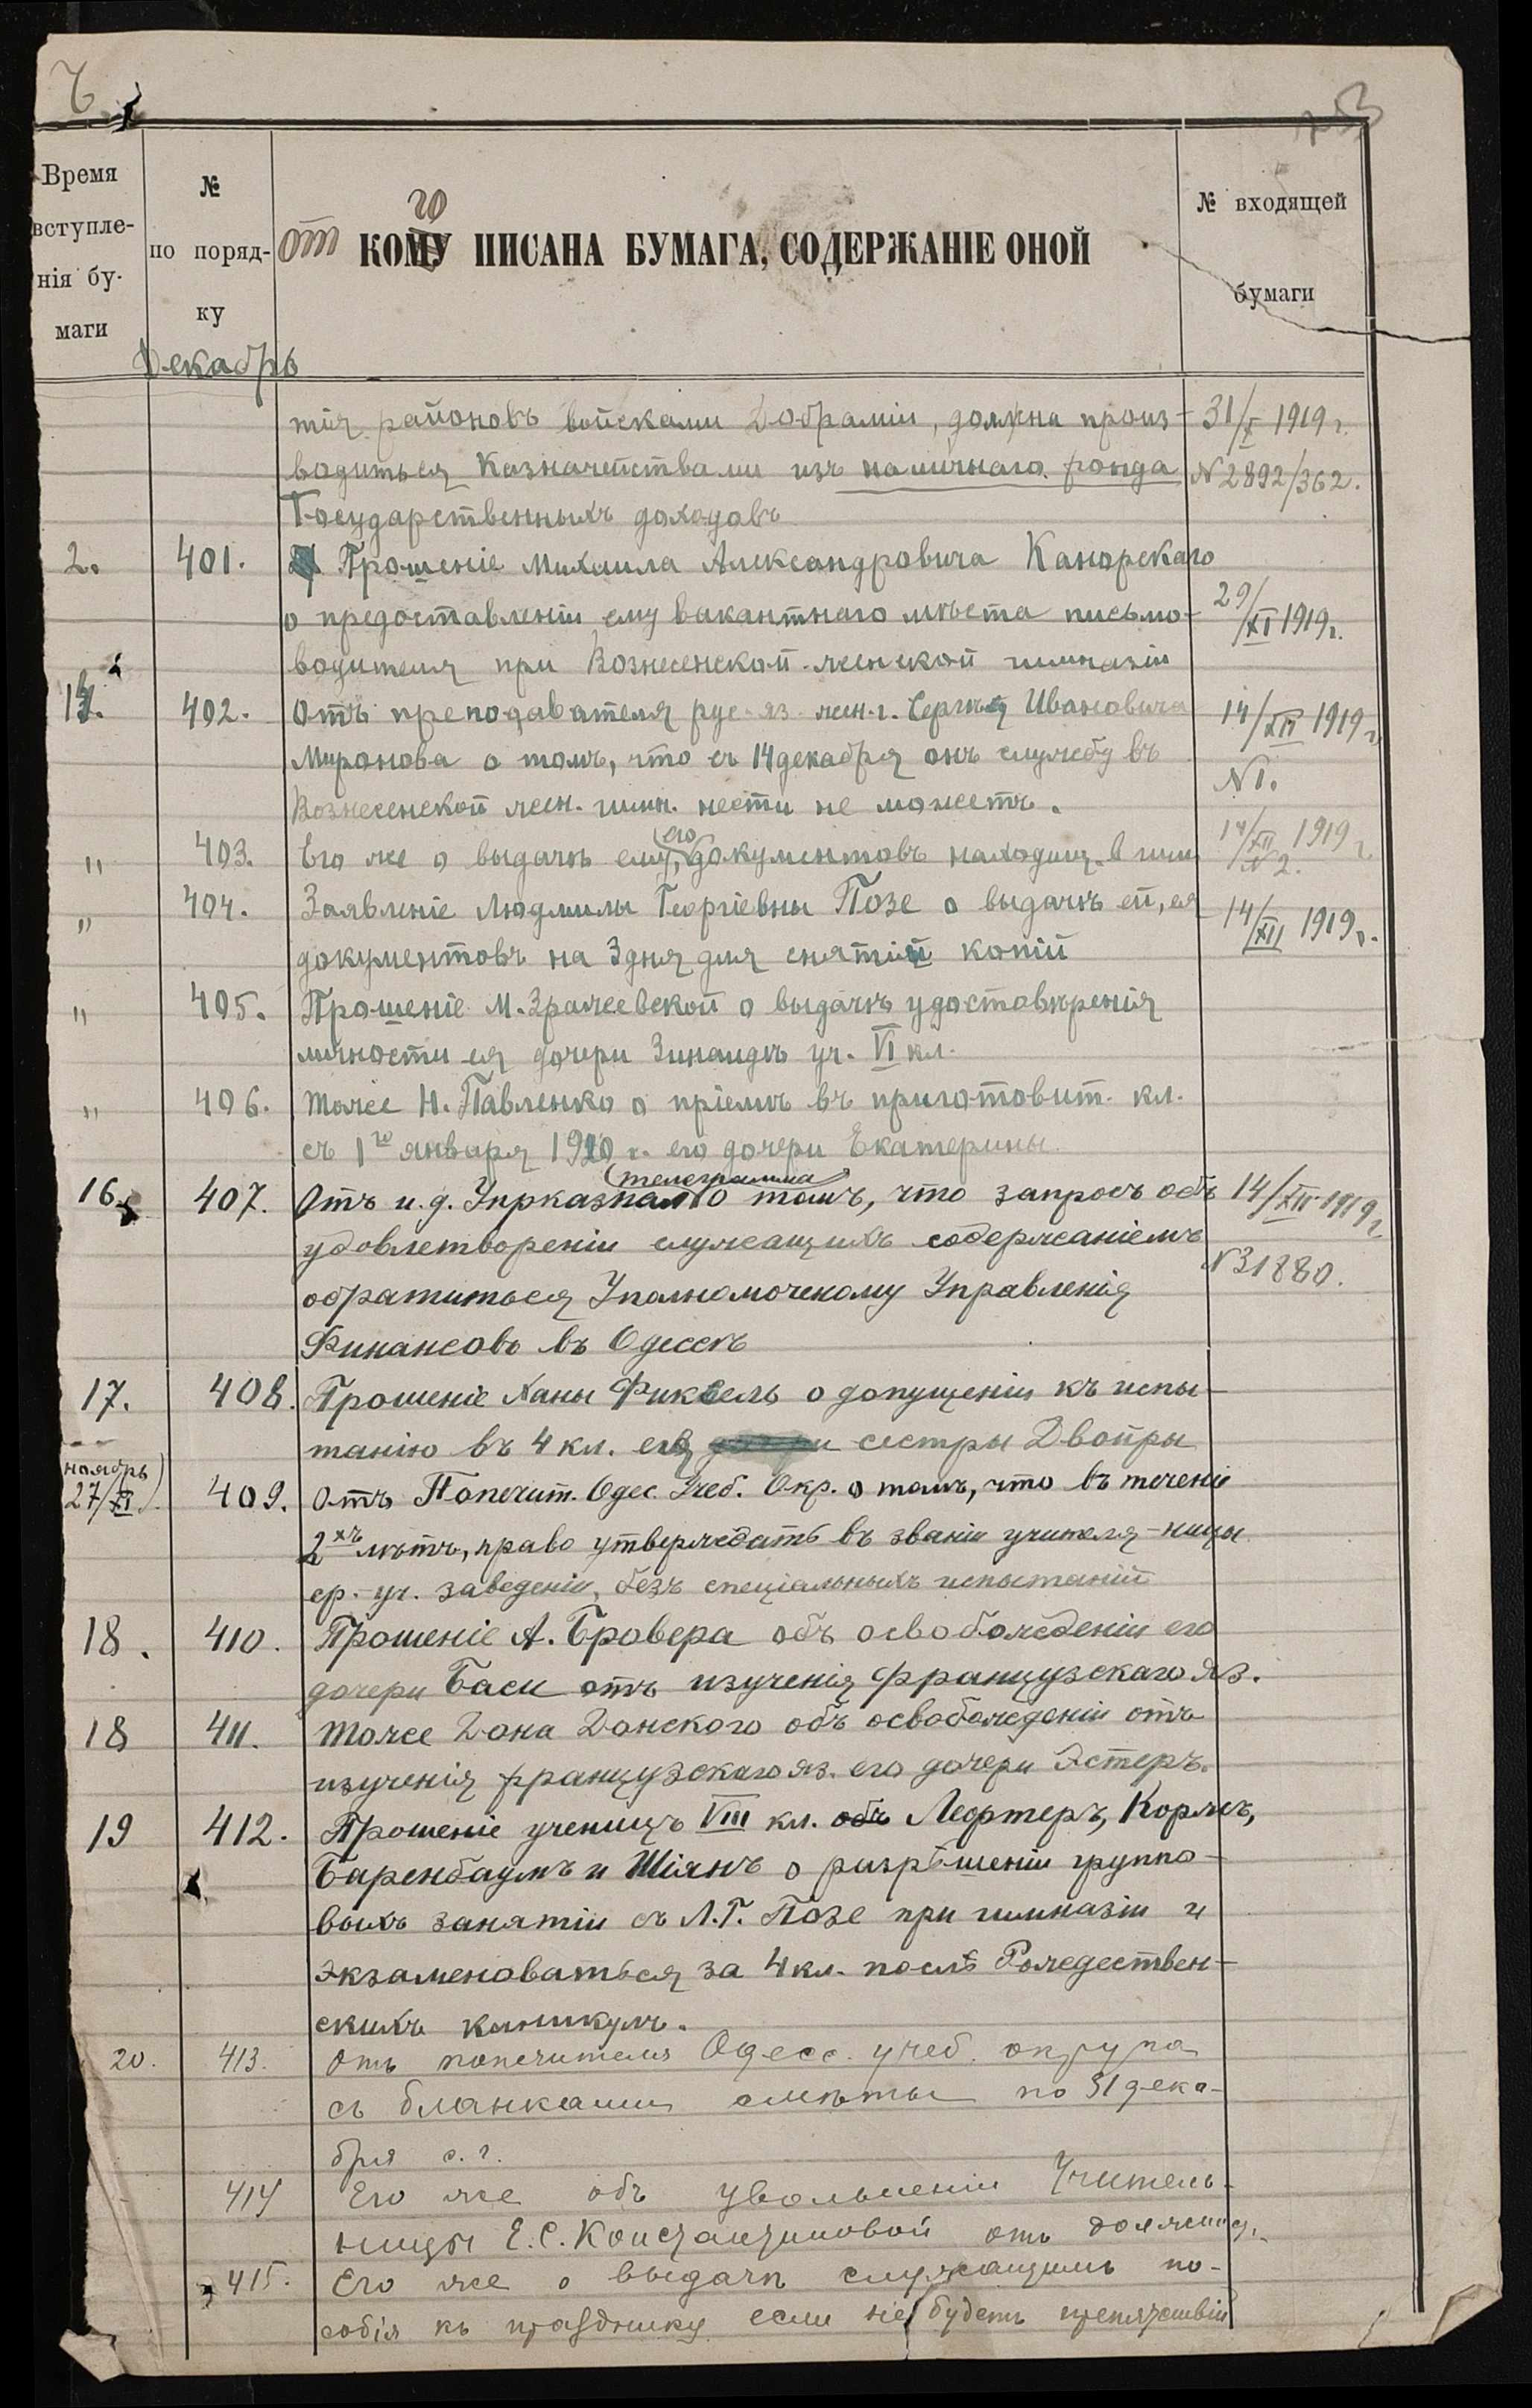 253
Время вступле-
нія бу-
маги
№
по поряд-
ку
от КОМУ ПИСАНА БУМАГА, СОДЕРЖАНІЕ ОНОЙ
го
№ входящей
бумаги
Декабрь
тіи районовъ войсками Добрарміи, должна произ- 31/X 1919 г.
водиться Казначействами изъ наличнаго фонда №2892/362.
Государственныхъ доходовъ
2. 401. Прошеніе Михаила Александровича Канорскаго
о предоставленіи ему вакантнаго мѣста письмо- 29/XI 1919г.
водителя при Вознесенской женской гимназіи
14. 402. Отъ преподавателя рус. яз. жен. г. Сергѣя Ивановича 14/XII 1919 г.
Миронова о томъ, что съ 14 декабря онъ службу въ
Вознесенской жен. гимн. нести не можетъ. №1.
" 403. Его же о выдачѣ ему, его документовъ находящ. в гим 14/XII 1919 г. №2.
" 404. Заявленіе Людмилы Георгіевны Позе о выдачѣ ей, ея 14/XII 1919 г.
документовъ на 3 дня для снятій копій
" 405. Прошеніе М. Зражевской о выдачѣ удостовѣренія
личности ея дочери Зинаидѣ уч. VI кл.
" 406. Тоже Н. Павленко о пріемѣ въ приготовит. кл.
съ 1го января 1920 г. его дочери Екатерины
телеграмма
16 407. Отъ и. д. Упрказпал о томъ, что запросъ объ 14/XII 1919 г.
удовлетвореніи служащихъ содержаніемъ №31880.
обратиться Уполномоченому Управленія
Финансовъ въ Одессѣ
17. 408. Прошеніе Ханы Фиксель о допущеніи къ испы-
танію въ 4 кл. ея сестры Двойры
ноябрь
27/XI 409. Отъ Попечит. Одес. Учеб. Окр. о томъ, что въ теченіе
2хъ лѣтъ, право утверждать въ званіи учителя-ницы
ср.-уч. заведеній, безъ спеціальныхъ испытаній
18. 410. Прошеніе А. Бровера объ освобожденіи его
дочери Баси отъ изученія французскаго яз.
18 411. Тоже Дона Донского объ освобожденіи отъ
изученія французскаго яз. его дочери Эстеръ.
19 412. Прошеніе ученицъ VIII кл. объ Лефтеръ, Корлъ,
Баренбаумъ и Шіянъ о разрѣшеніи группо-
выхъ занятій съ Л.Г. Позе при гимназіи и
экзаменоваться за 4 кл. послѣ Рождествен-
скихъ каникулъ.
20. 413. Отъ попечителя Одесс. учеб. округа
съ бланками смѣты по 31 дека-
бря с. г.
414 Его же объ увольненіи Учитель-
ницы Е. С. Константиновой отъ должнос.
415. Его же о выдачѣ служащимъ по-
собія къ празднику если не будетъ препятствій